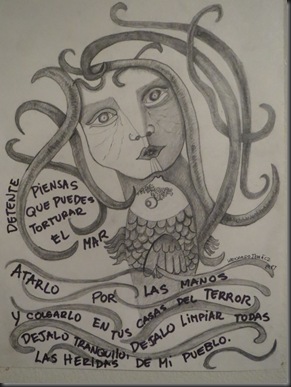 DETENTE
PIENSAS
QUE PUEDES
TORTURAR
EL MAR
ATARLO POR LAS MANOS
Y COLGARLO EN TUS CASAS DEL TERROR
DEJALO TRANQUILO, DEJALO LIMPIAR TODAS
LAS HERIDAS DE MI PUEBLO.